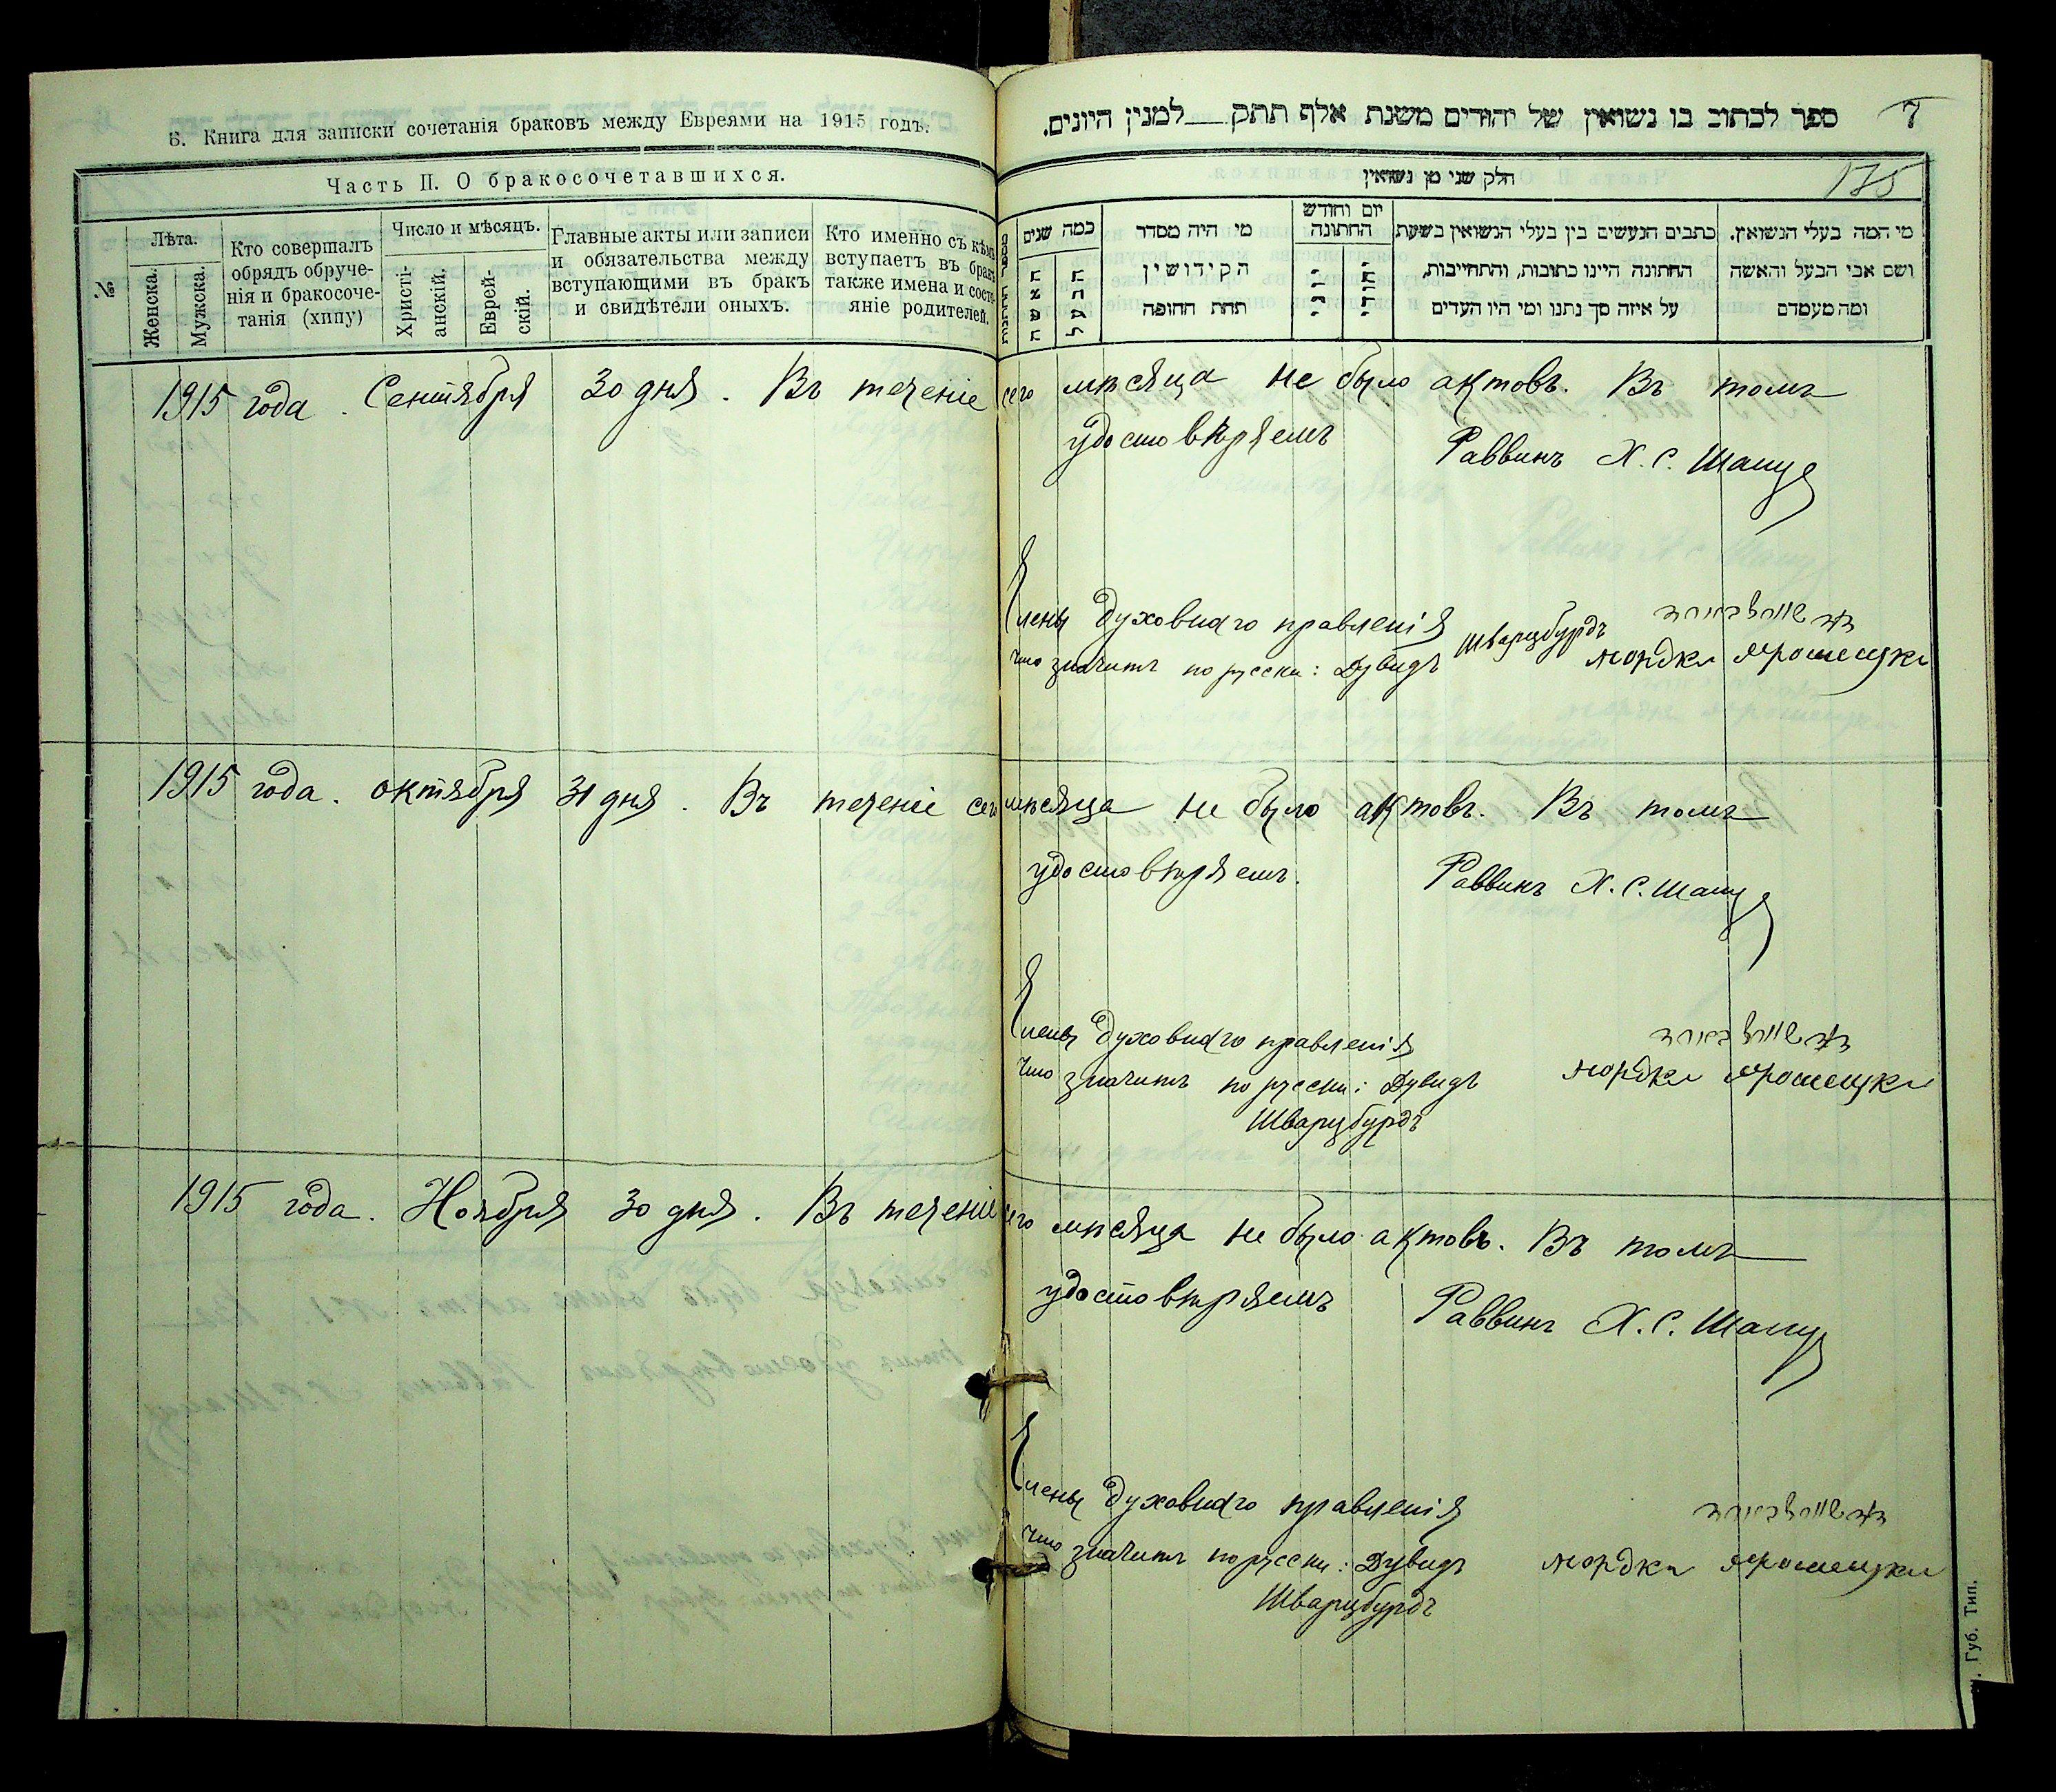 6. Книга для записки сочетанія браковъ между Евреями на 1915 годъ.
Часть II. О бракосочетавшихся.
№
Лѣта.
Женска.
Мужска.
Кто совершалъ
обрядъ обруче-
нія и бракосоче-
танія (хипу)
Число и мѣсяцъ.
Христі-
анскій.
Еврей-
скій.
Главные акты или записи
и обязательства между
вступающими въ бракъ
и свидѣтели оныхъ.
Кто именно съ кѣмъ
вступаетъ въ бракъ
также имена и состо-
яніе родителей.
7
ספר לכתוב בו נשואין של יהודים משנת אלף תתק למנין היונים.
175
חלק שני מן נשואין
מי המה בעלי הנשואין.
ושם אבי הבעל והאשה
ומה מעמדם
כתבים הנעשים בין בעלי הנשואין בשעת
החתונה היינו כתובות, והתחייבות,
על איזה סך נתנו ומי היו העדים
יום וחודש
החתונה
יהודי
יוני
מי היה מסדר
הקידושין
תחת החופה
כמה שנים
הבעל
האשה
1915 года. Сентября 30 дня. Въ теченіе сего мѣсяца не было актовъ. Въ томъ
удостовѣряемъ Раввинъ Х. С. Шапу
Члены духовнаго правленія
что значитъ по русски: Дувидъ Шварцбурдъ Мордко Ярошецки
1915 года. октября 31 дня. Въ теченіе сего мѣсяца не было актовъ. Въ томъ
удостовѣряемъ. Раввинъ Х. С. Шапу
Члены духовнаго правленія
что значитъ по русски: Дувидъ Мордко Ярошецки
Шварцбурдъ
1915 года. Ноября 30 дня. Въ теченіе сего мѣсяца не было актовъ. Въ томъ
удостовѣряемъ Раввинъ Х. С. Шапу
Члены духовнаго правленія
что значитъ по русски: Дувидъ Мордко Ярошецки
Шварцбурдъ
Губ. Тип.